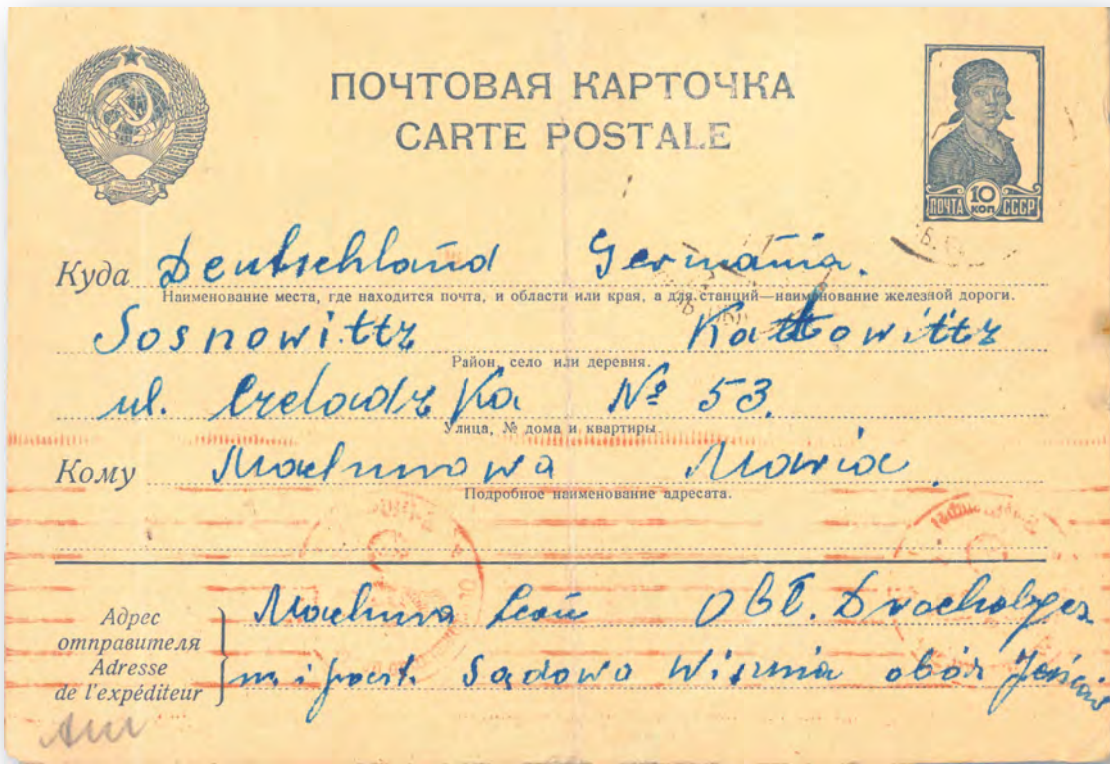 ПОЧТОВАЯ КАРТОЧКА
CARTE POSTALE
10
КОП
ПОЧТА СССР
Куда Deutschland Germania.
Наименование места, где находится почта, и области или края, а для станций—наименование железной дороги.
Sosnowittz Kattowittz
Район, село или деревня.
ul. Czeladzka № 53.
Улица, № дома и квартиры
Кому Machunowa Maria.
Подробное наименование адресата.
Адрес отправителя
Adresse de l'expéditeur
Machura Leon Obł.
m. i poczt. Sadowa Wisznia obóz